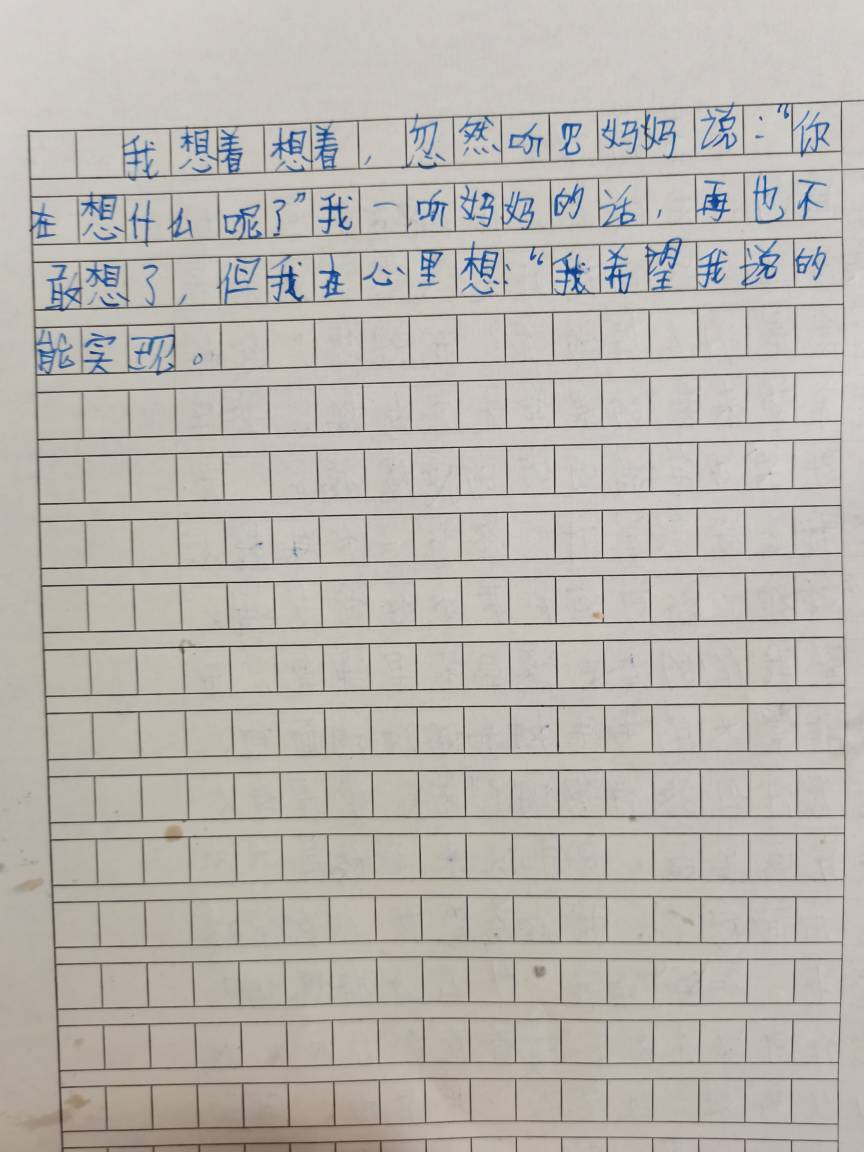 我想着想着，忽然听见妈妈说：“你
在想什么呢？”我一听妈妈的话，再也不
敢想了，但我在心里想：“我希望我说的
能实现。